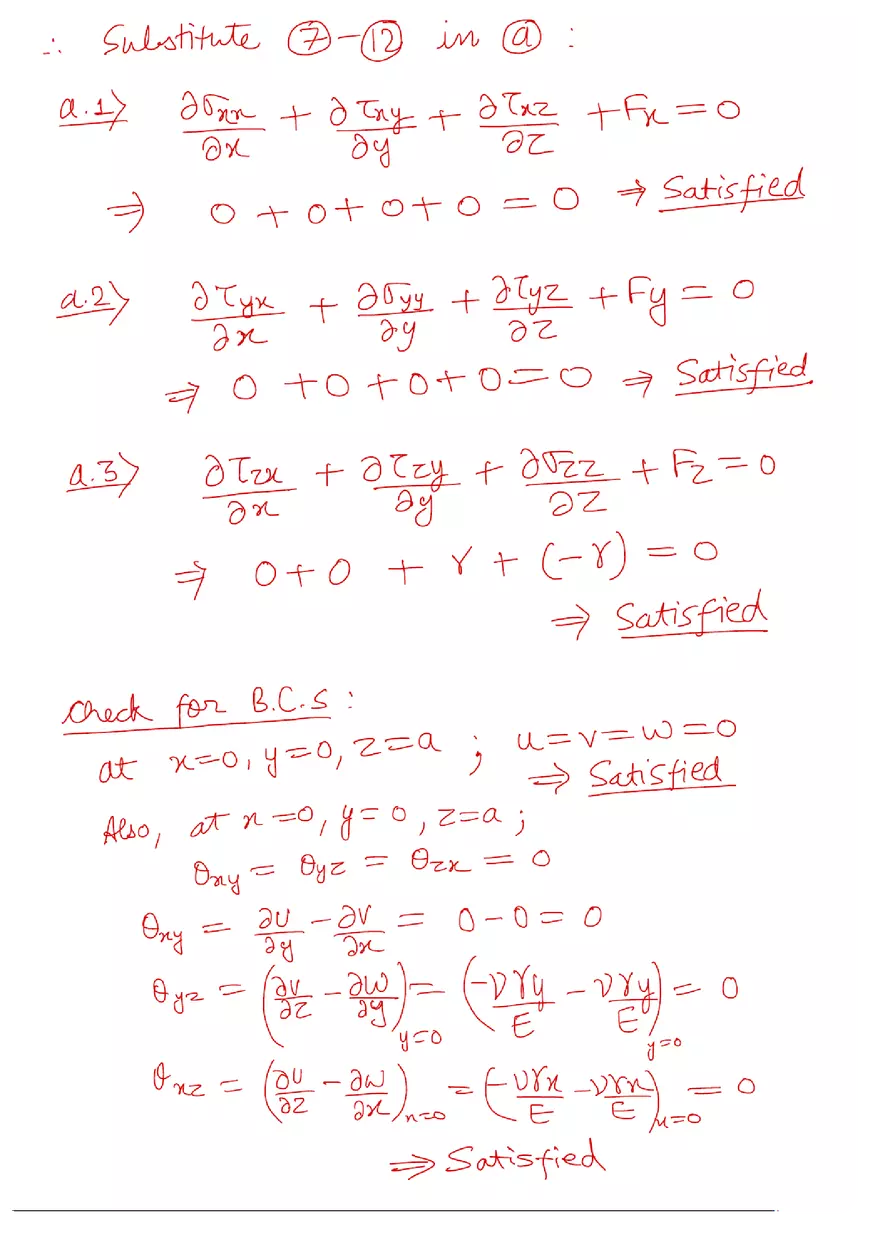 ∴ Substitute ⑦-⑫ in ⓐ :
a.1> ∂σxx/∂x + ∂τxy/∂y + ∂τxz/∂z + Fx = 0
⇒ 0 + 0 + 0 + 0 = 0 ⇒ Satisfied
a.2> ∂τyx/∂x + ∂σyy/∂y + ∂τyz/∂z + Fy = 0
⇒ 0 + 0 + 0 + 0 = 0 ⇒ Satisfied
a.3> ∂τzx/∂x + ∂τzy/∂y + ∂σzz/∂z + Fz = 0
⇒ 0 + 0 + γ + (-γ) = 0
⇒ Satisfied
Check for B.C.s :
at x=0, y=0, z=a ; u=v=w=0
⇒ Satisfied
Also, at x=0, y=0, z=a ;
θxy = θyz = θzx = 0
θxy = ∂u/∂y - ∂v/∂x = 0 - 0 = 0
θyz = (∂v/∂z - ∂w/∂y)y=0 = (-νγy/E - νγy/E)y=0 = 0
θxz = (∂u/∂z - ∂w/∂x)x=0 = (-νγx/E - νγx/E)x=0 = 0
⇒ Satisfied